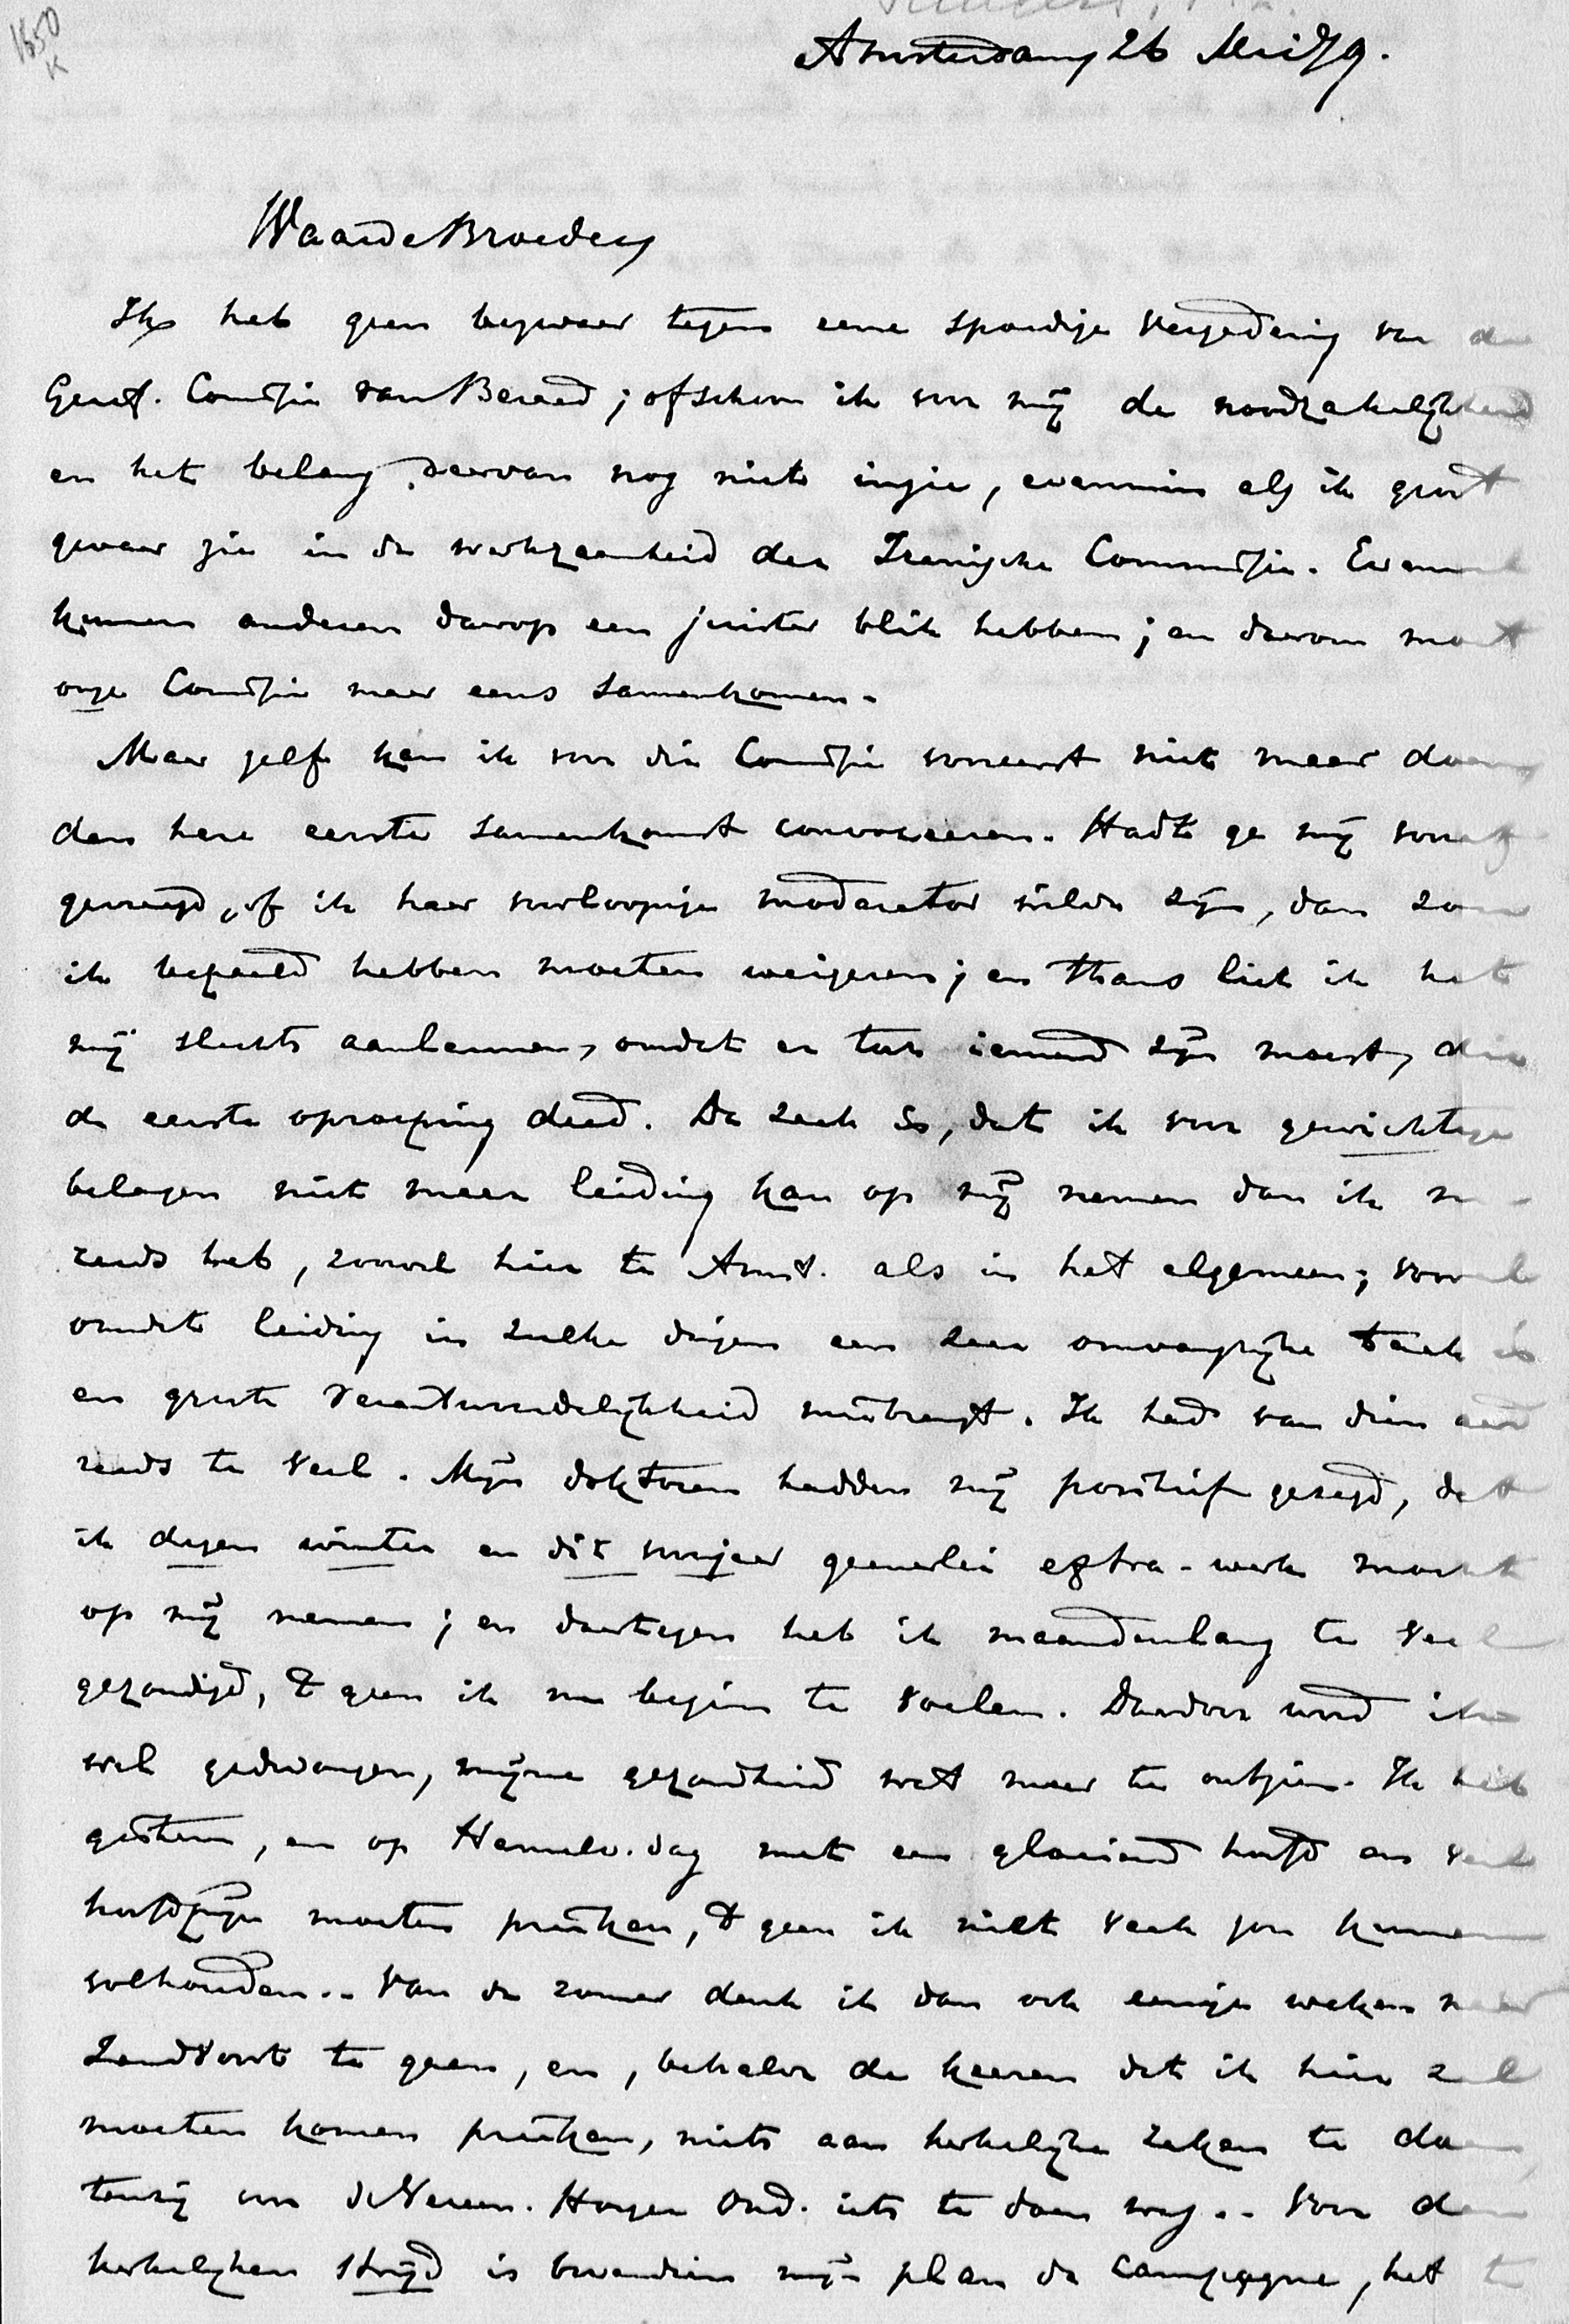 1650
K
Amsterdam, 26 Mei 79.
Waarde Broeders
Ik heb geen bezwaar tegen eene spoedige vergadering van de
Geref. Comssie van Beraad; ofschoon ik voor mij de noodzakelijkheid
en het belang daarvan nog niet inzie, evenmin als ik groot
gevaar zie in de werkzaamheid der Irenische Commissie. Evenwel
kunnen anderen daarop een juister blik hebben; en daarom moet
onze Comssie maar eens samenkomen.
Maar zelf kan ik voor die Comssie vooreerst niet meer doen,
dan hare eerste samenkomst convoceeren. Hadt ge mij vooraf
gevraagd, of ik haar voorloopige moderator wilde zijn, dan zou
ik bepaald hebben moeten weigeren; en thans liet ik het
mij slechts aanleunen, omdat er toch iemand zijn moest, die
de eerste oproeping deed. De zaak is, dat ik voor gewichtige
belangen niet meer leiding kan op mij nemen dan ik
reeds heb, zoowel hier te Amst. als in het algemeen; vooral
omdat leiding in zulke dingen een zeer omvangrijke taak is
en groote verantwoordelijkheid meebrengt. Ik had van dien aard
reeds te veel. Mijn doktoren hadden mij positief gezegd, dat
ik dezen winter en dit voorjaar geenerlei extra-werk moest
op mij nemen; en daartegen heb ik maandenlang te veel
gezondigd, 't geen ik nu begin te voelen. Daardoor word ik
wel gedwongen, mijne gezondheid wat meer te ontzien. Ik heb
gisteren, en op Hemelv.dag met een gloeiend hoofd en veel
hoofdpijn moeten preeken, 't geen ik niet vaak zou kunnen
volhouden.. Van de zomer denk ik dan ook eenige weken naar
Zandvoort te gaan, en, behalve de keeren dat ik hier zal
moeten komen preeken, niets aan kerkelijke zaken te doen,
tenzij voor de Vereen. Hooger Ond. iets te doen mog.. Voor den
kerkelijken strijd is bovendien mijn plan de campagne, het te